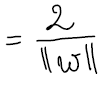 = 2 / ||w||